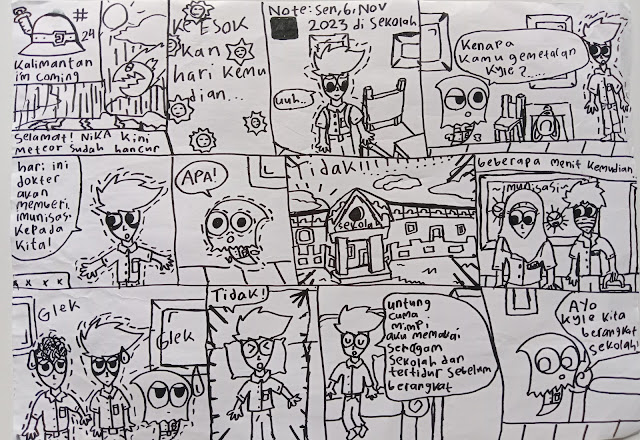 #
24
Kalimantan
i'm coming
Selamat! NiKA Kini
Meteor sudah hancur
KEESOK
kan
hari Kemu
dian...
Note: Sen, 6, Nov
2023 di Sekolah
uuh...
Kenapa
Kamu gemetaran
Kyle?....
hari ini
dokter
akan
memberi
imunisasi
Kepada
Kita!
APA!
Tidak!!!
sekolah
beberapa menit Kemudian...
~imunisasi~
Glek
Glek
Tidak!
untung
cuma
mimpi
aku memakai
seragam
Sekolah dan
tertidur sebelum
berangkat
Ayo
Kyle Kita
berangkat
sekolah!